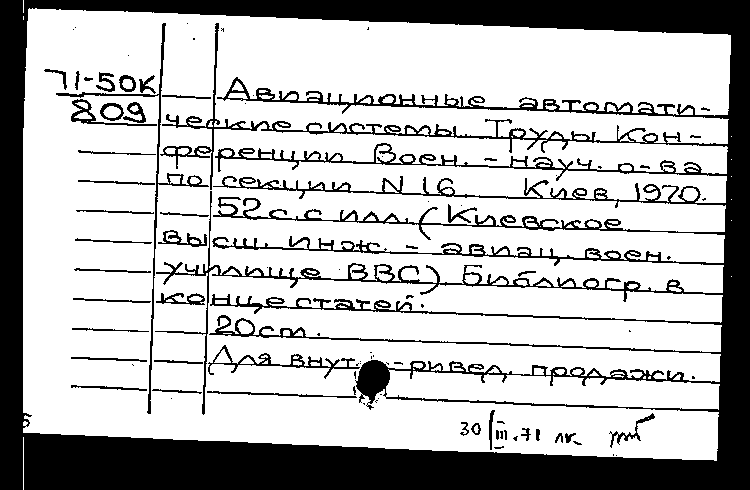 71-50К
809
Авиационные автомати-
ческие системы. Труды Кон-
ференции Воен. - науч. о-ва
по секции N 16. Киев, 1970.
52 с. с илл. (Киевское
высш. инж. - авиац. воен.
училище ВВС) Библиогр. в
конце статей.
20 см.
Для внут -ривед. продажи.
30/III.71 лк